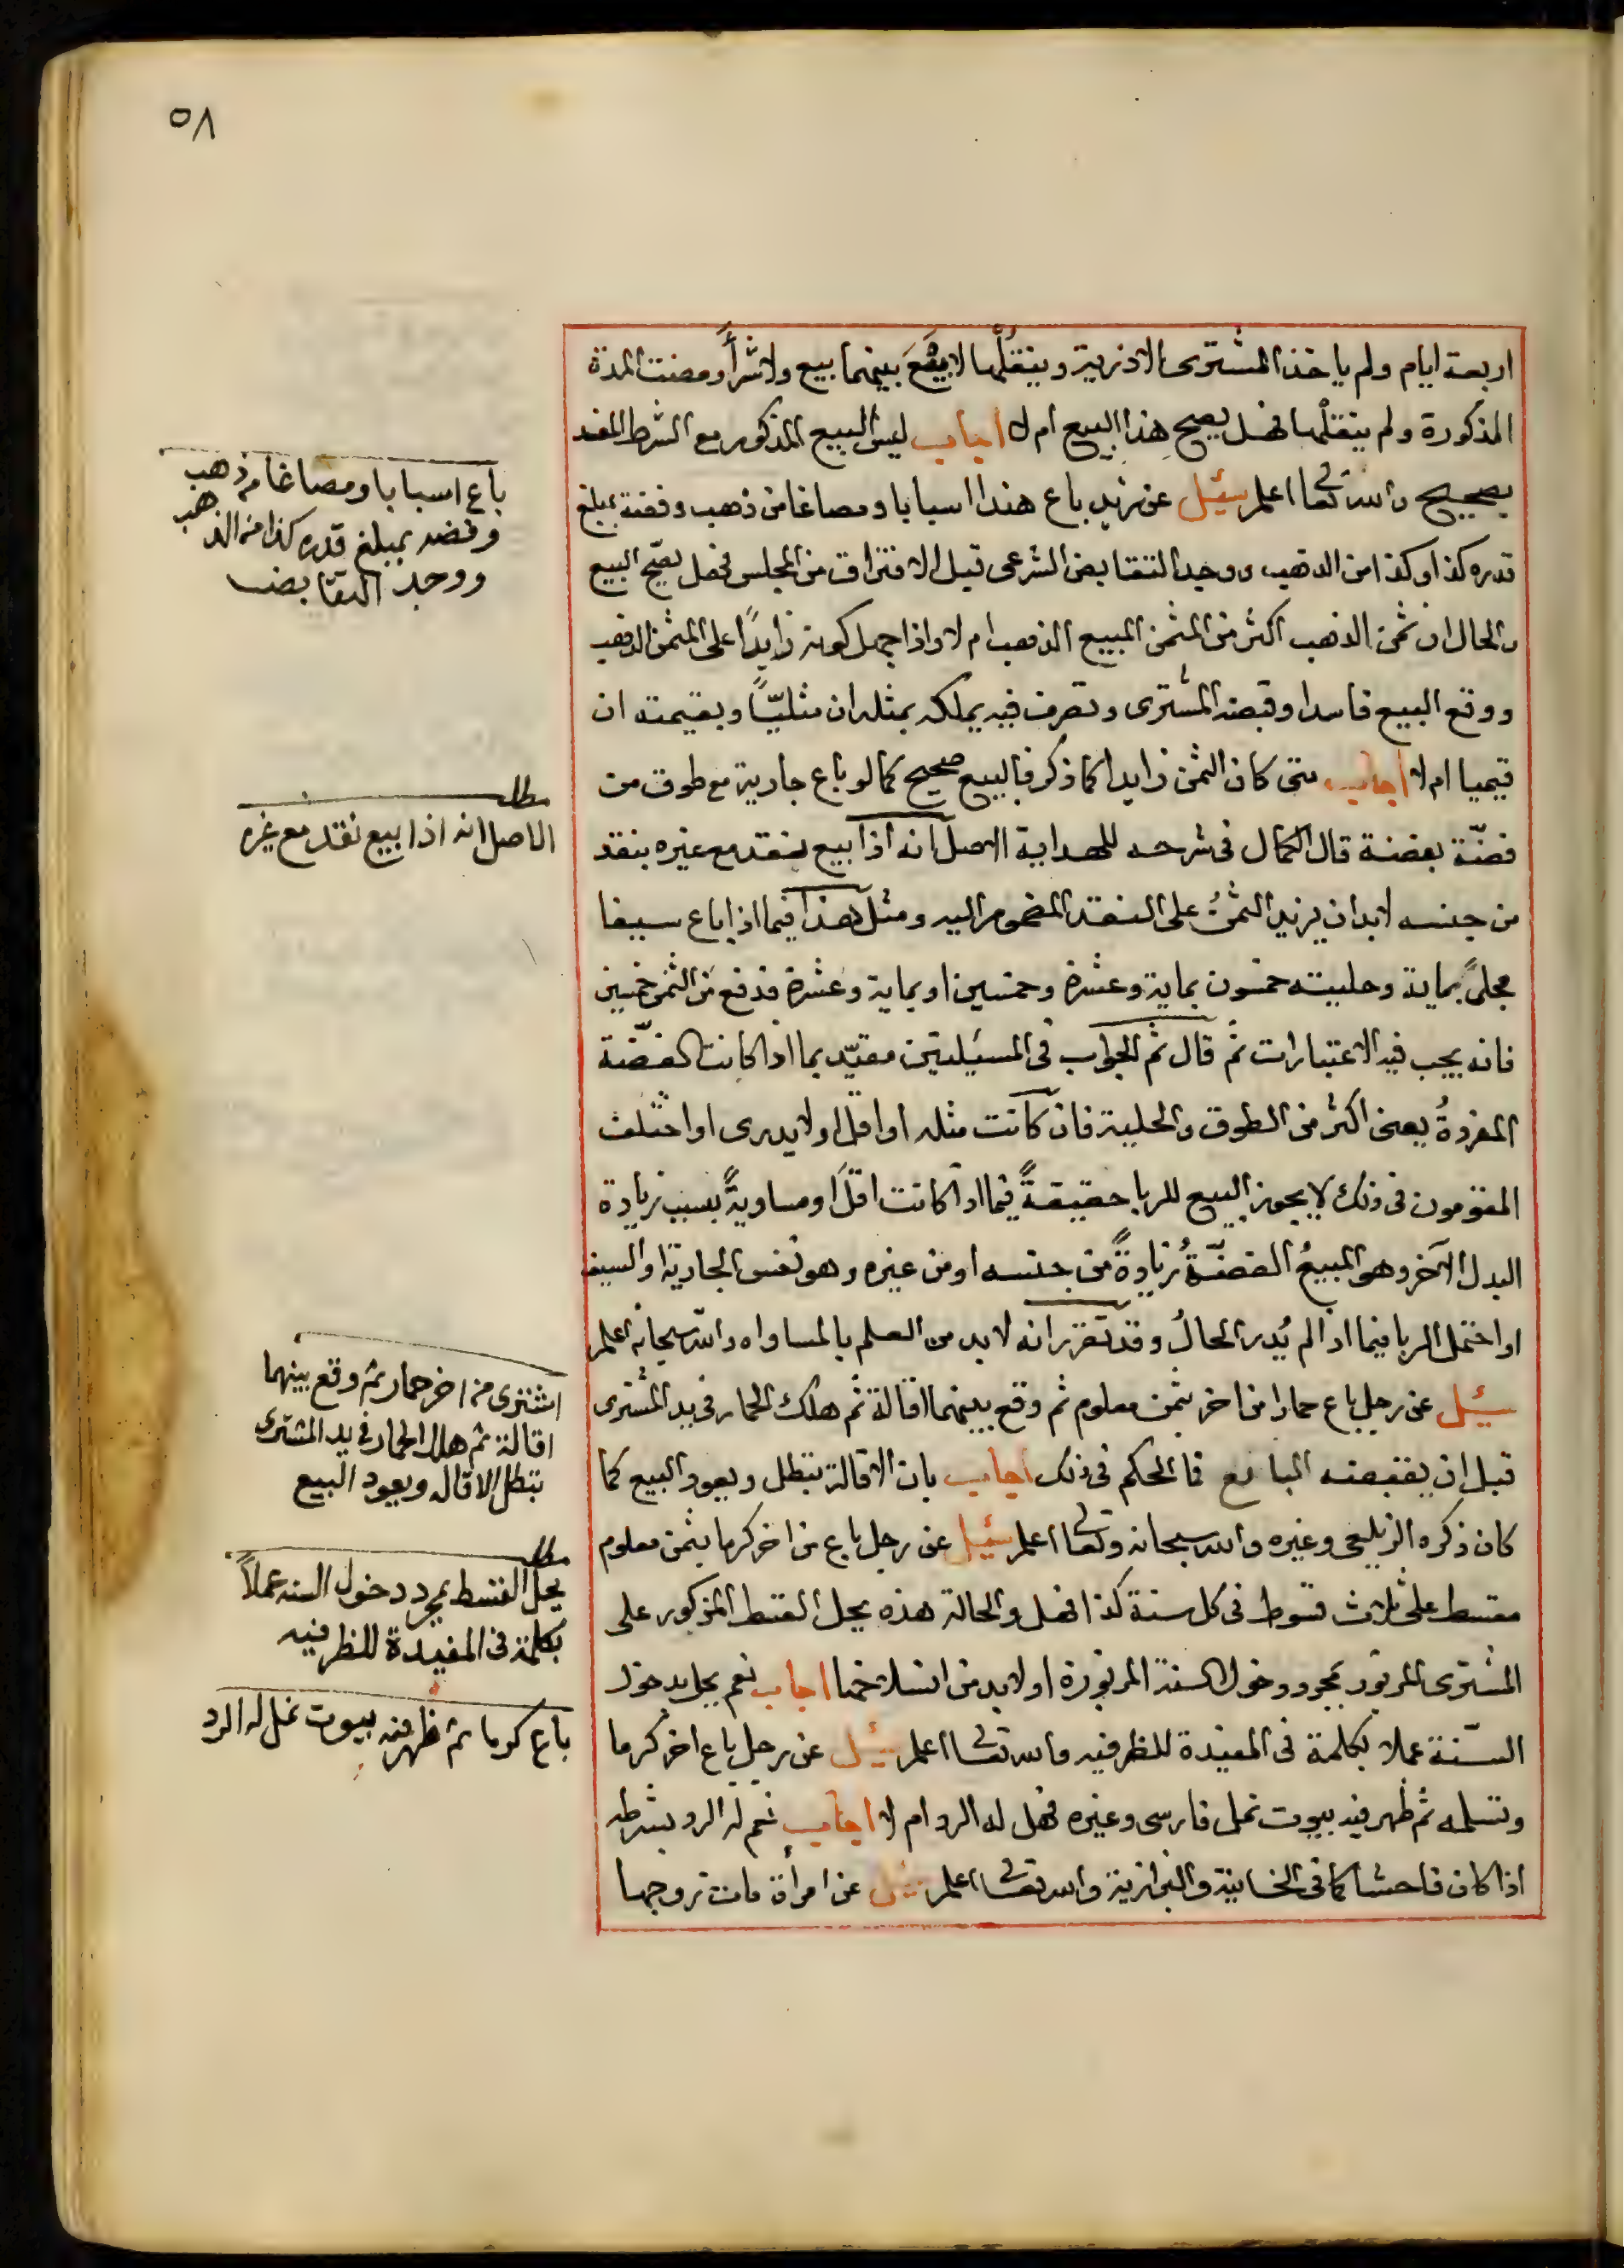 ٥٨
اربعة ايام ولم ياخذ المشترى الاذرية وينقلها لا يقع بينهما بيع ولا شرأ ومضت المدة
المذكورة ولم ينقلها فهل يصح هذا البيع ام لا اجاب ليس البيع المذكور مع الشرط المفسد
بصحيح والله تعا اعلم سئيل عن زيد باع هندا اسبابا ومصاغا من ذهب وفضة بمبلغ
قدره كذا وكذا من الذهب ووجد التقابض الشرعى قبل الافتراق من المجلس فهل يصح البيع
والحال ان ثمن الذهب اكثر من المثمن المبيع الذهب ام لا واذا جهل كونه زايدًا على المثمن الذهب
ووقع البيع فاسدا وقبضه المشترى وتصرف فيه يملكه بمثله ان مثليًّا وبقيمته ان
قيميا ام لا اجاب متى كان الثمن زايدا كما ذكر فالبيع صحيح كما لو باع جارية مع طوق من
فضّة بفضة قال الكمال فى شرحه للهداية الاصل انه اذا بيع نقد مع غيره بنقد
من جنسه لابد ان يزيد الثمنُ على النقد المضموم اليه ومثل هذا فيما اذا باع سيفا
محلىً بماية وحليته خمسون بماية وعشرة وخمسين او بماية وعشرة فدفع من الثمن خمسين
فانه يجب فيه الاعتبارات ثم قال ثم الجواب فى المسئيلتين مقيّد بما اذا كانت الفضّة
المفردةُ يعنى اكثر من الطوق والحلية فان كانت مثله او اقل او لا يدرى او اختلف
المقومون فى ذلك لا يجوز البيع للربا حقيقةً فيما اذا كانت اقل او مساويةً بسبب زيادة
البدل الآخر وهى المبيعُ الفضّةُ زيادةً من جنسه او من غيره وهو نفس الجارية او السيف
او احتمل الربا فيما اذا لم يُدر الحالُ وقد تقرر انه لا بد من العلم بالمساواه والله سبحانه اعلم
سئيل عن رجل باع حمارا من اخر بثمن معلوم ثم وقع بينهما اقالة ثم هلك الحمار فى يد المشترى
قبل ان يقبضه البايع فما الحكم فى ذلك اجاب بان الاقالة تبطل ويعود البيع كما
كان ذكره الزيلعى وغيره والله سبحانه وتعا اعلم سئيل عن رجل باع من اخر كرما بثمن معلوم
مقسط على ثلاث قسوط فى كل سنة كذا فهل والحالة هذه يحل القسط المذكور على
المشترى المزبور بمجرد دخول السنة المزبورة او لابد من انسلاخها اجاب نعم يحل بدخول
السّنة عملا بكلمة فى المفيدة للظرفيه والله تعا اعلم سئيل عن رجل باع اخر كرما
وتسلمه ثم ظهر فيه بيوت نمل فارسى وغيره فهل له الرد ام لا اجاب نعم له الرد بشرطه
اذا كان فاحشا كما فى الخانية والبزازية والله تعا اعلم سئيل عن امرأة مات زوجها
باع اسبابا ومصاغا من ذهب
وفضه بمبلغ قدره كذا من الذهب
ووجد التقابض
مطلب
الاصل انه اذا بيع نقد مع غيره
اشترى من اخر حمار ثم وقع بينهما
اقالة ثم هلك الحمار فى يد المشترى
تبطل الاقاله ويعود البيع
مطلب
يحل القسط بمجرد دخول السنه عملاً
بكلمة فى المفيدة للظرفيه
باع كرما ثم ظهر فيه بيوت نمل له الرد